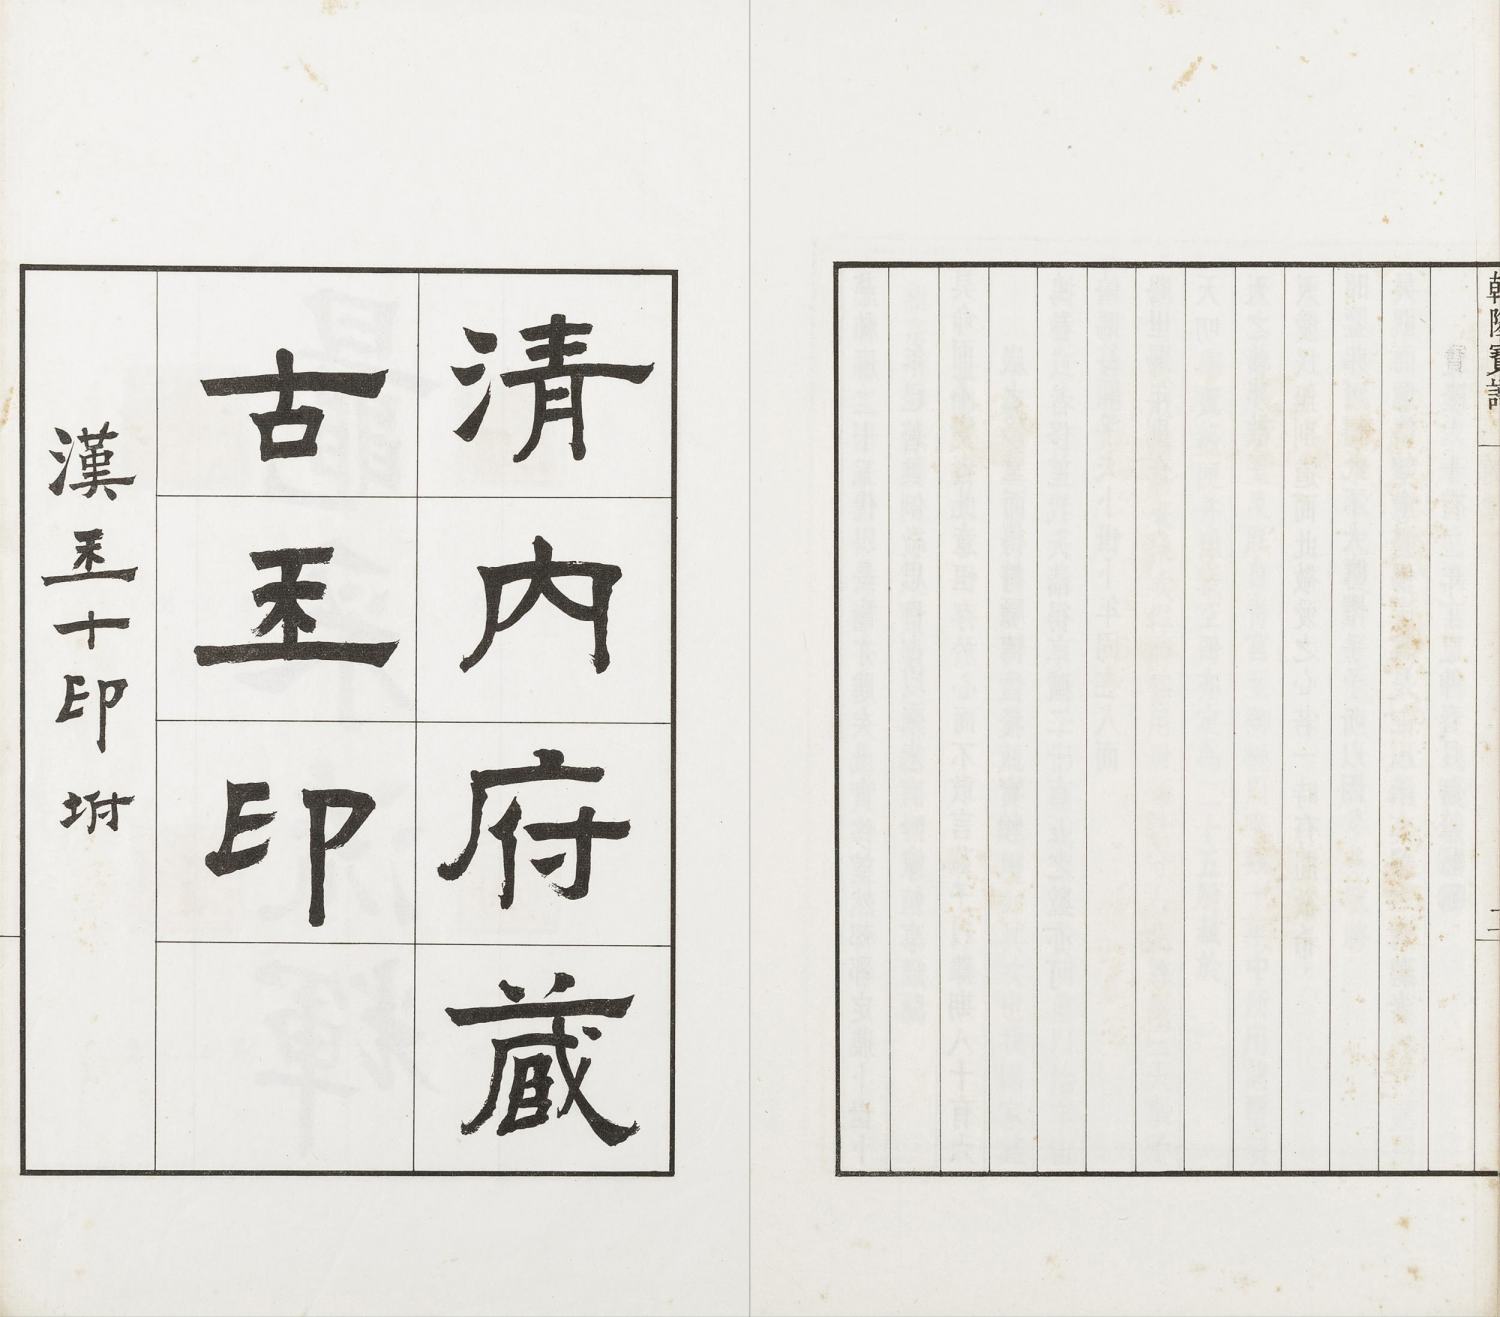 乾隆寶譜
清内府藏
古玉印
漢玉十印坿